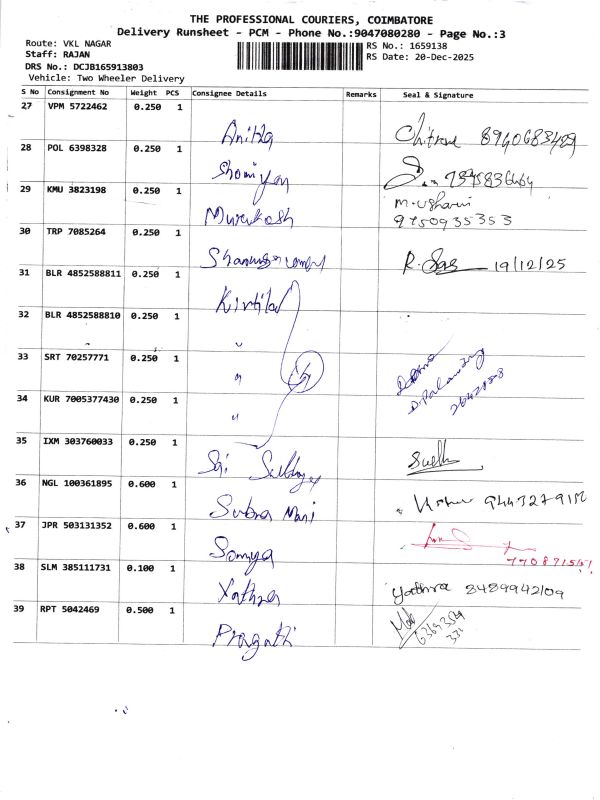 THE PROFESSIONAL COURIERS, COIMBATORE
Delivery Runsheet - PCM - Phone No.:9047080280 - Page No.:3
Route: VKL NAGAR
RS No.: 1659138
Staff: RAJAN
RS Date: 20-Dec-2025
DRS No.: DCJB165913803
Vehicle: Two Wheeler Delivery
S No Consignment No Weight PCS Consignee Details Remarks Seal & Signature
27 VPM 5722462 0.250 1
Anitha Chitra
28 POL 6398328 0.250 1
29 KMU 3823198 0.250 1
Murukesh 9750935353
30 TRP 7085264 0.250 1
R. 19/12/25
31 BLR 4852588811 0.250 1
32 BLR 4852588810 0.250 1
"
33 SRT 70257771 0.250 1
"
34 KUR 7005377430 0.250 1
"
35 IXM 303760033 0.250 1
Sai
36 NGL 100361895 0.600 1
Subra Mani
37 JPR 503131352 0.600 1
Somya
38 SLM 385111731 0.100 1
Yathra Yathra 8489942109
39 RPT 5042469 0.500 1
Pragathi